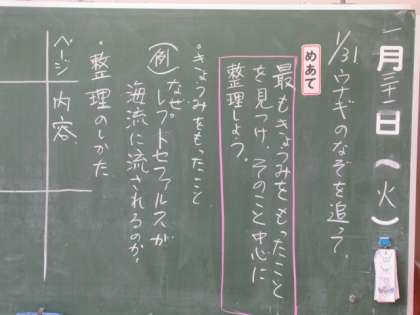 一月三十一日(火)
1/31 ウナギのなぞを追って
めあて
最もきょうみをもったこと
を見つけ、そのこと中心に
整理しよう。
・きょうみをもったこと
(例)なぜ
レプトセファルスが
海流に流されるのか。
・整理のしかた
ページ
内容